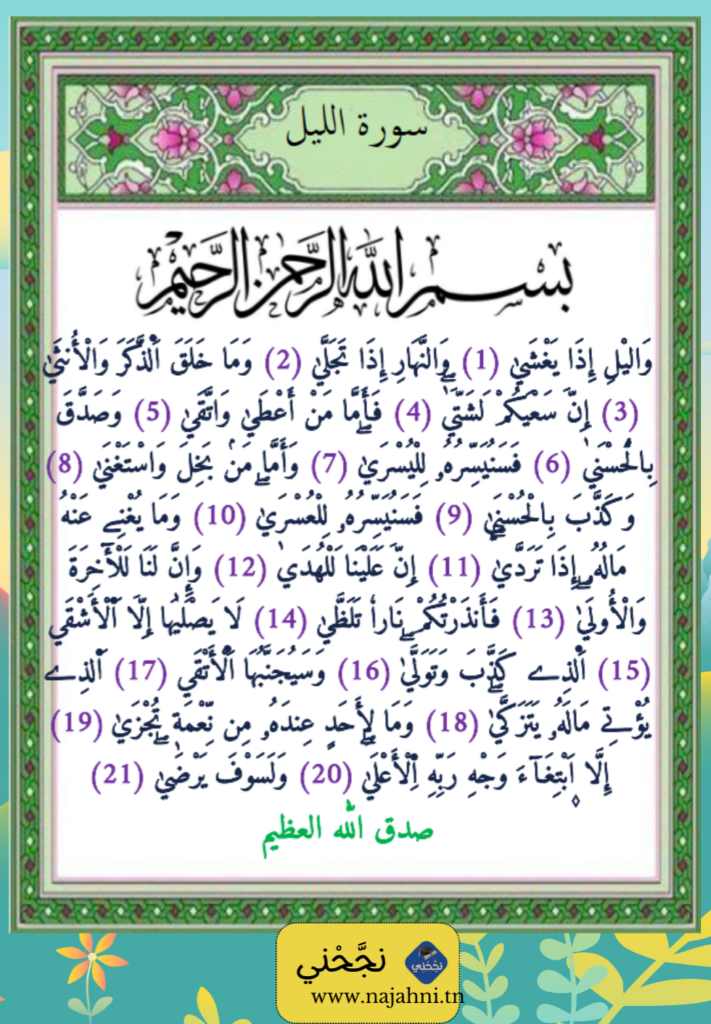 سورة الليل
بسم الله الرحمن الرحيم
وَاليْلِ إِذَا يَغْشَىٰ (1) وَالنَّهَارِ إِذَا تَجَلَّىٰ (2) وَمَا خَلَقَ اَلذَّكَرَ وَالْأُنثَىٰ
(3) إِنَّ سَعْيَكُمْ لَشَتَّىٰ (4) فَأَمَّا مَنْ أَعْطَىٰ وَاتَّقَىٰ (5) وَصَدَّقَ
بِالْحُسْنَىٰ (6) فَسَنُيَسِّرُهُۥ لِلْيُسْرَىٰ (7) وَأَمَّا مَنۢ بَخِلَ وَاسْتَغْنَىٰ (8)
وَكَذَّبَ بِالْحُسْنَىٰ (9) فَسَنُيَسِّرُهُۥ لِلْعُسْرَىٰ (10) وَمَا يُغْنِے عَنْهُ
مَالُهُۥ إِذَا تَرَدَّىٰ (11) إِنَّ عَلَيْنَا لَلْهُدَىٰ (12) وَإِنَّ لَنَا لَلْأَخِرَةَ
وَالْأُولَىٰ (13) فَأَنذَرْتُكُمْ نَاراٗ تَلَظَّىٰ (14) لَا يَصْلَىٰهَا إِلَّا اَلْأَشْقَى
(15) اَلذِے كَذَّبَ وَتَوَلَّىٰ (16) وَسَيُجَنَّبُهَا اَلْأَتْقَى (17) اَلذِے
يُؤْتِے مَالَهُۥ يَتَزَكَّىٰ (18) وَمَا لِأَحَدٍ عِندَهُۥ مِن نِّعْمَةٖ تُجْزَىٰ (19)
إِلَّا اَبْتِغَآءَ وَجْهِ رَبِّهِ اِلْأَعْلَىٰ (20) وَلَسَوْفَ يَرْضَىٰ (21)
صدق الله العظيم
نجَّحْني
نجّحْني
www.najahni.tn